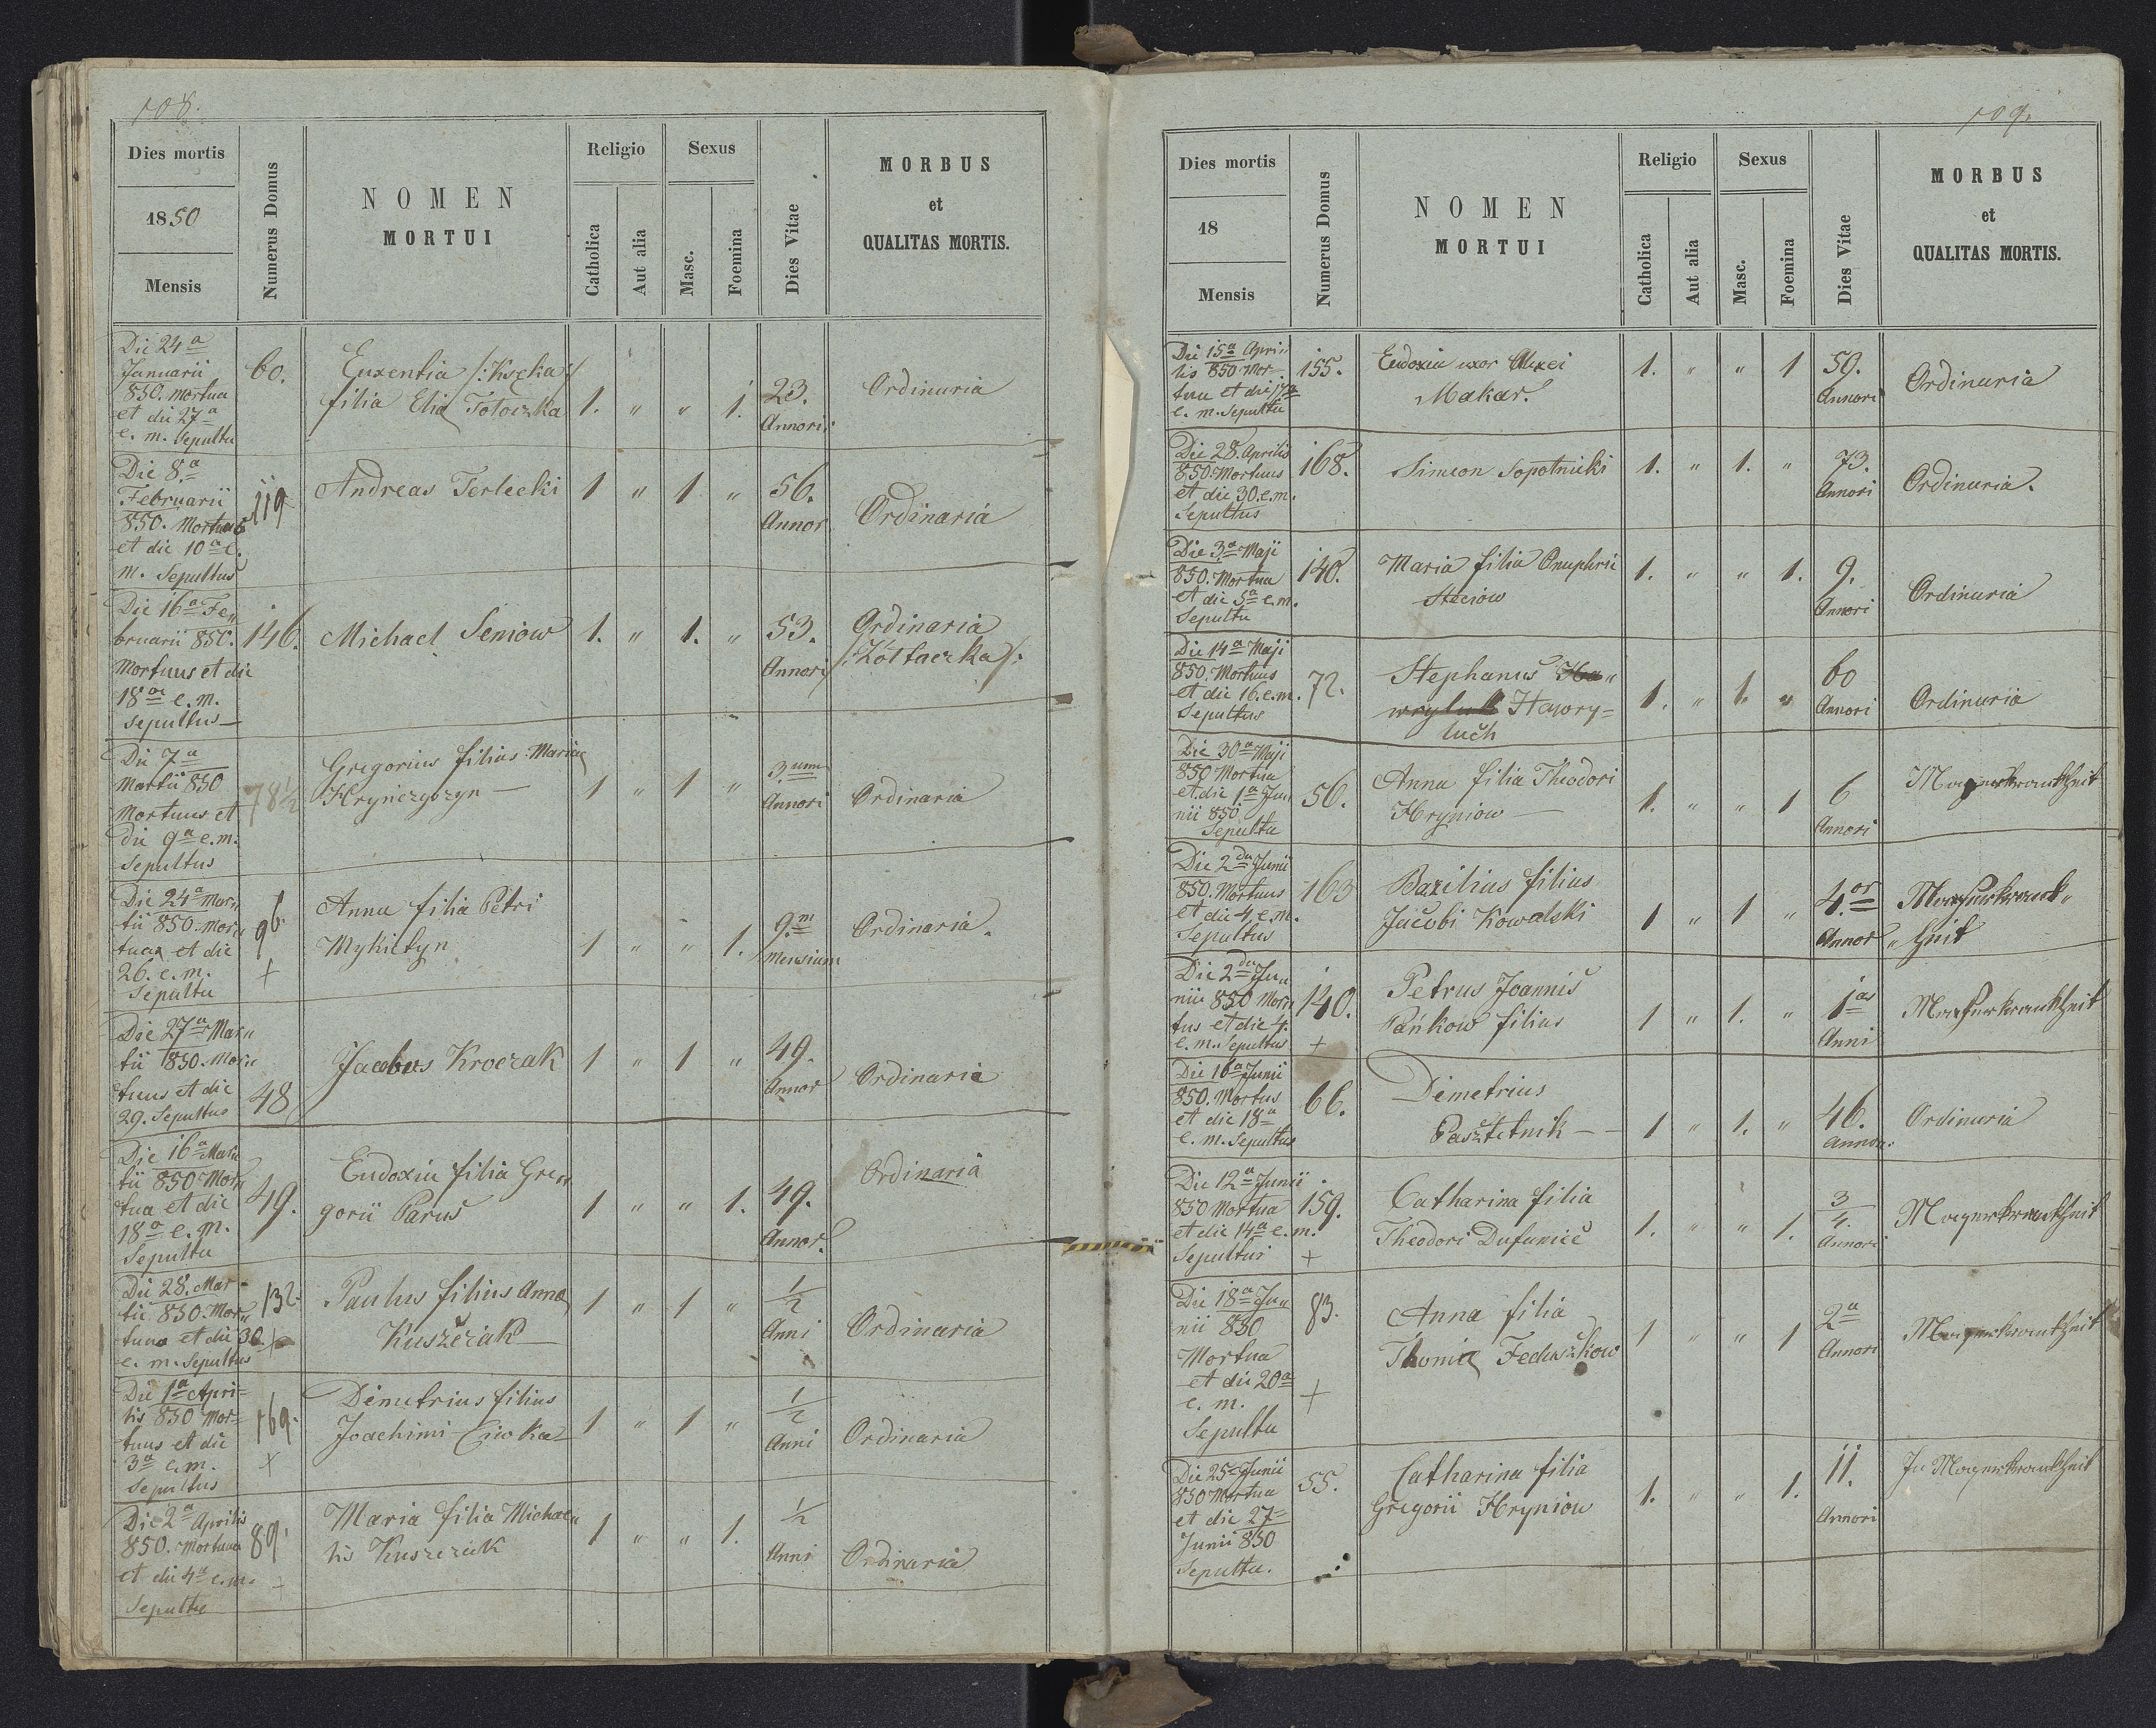 108.
Dies mortis
1850
Mensis
Numerus Domus
NOMEN
MORTUI
Religio
Catholica
Aut alia
Sexus
Masc.
Foemina
Dies Vitae
MORBUS
et
QUALITAS MORTIS.
Die 24a
Januarii
850. Mortua
et die 27a
e. m. Sepulta
60.
Euxentia /:Kseka/
filia Elię Toloczka
1. " " 1.
23.
Annori
Ordinaria
Die 8.a
Februarii
850. Mortuus
et die 10a e.
m. Sepultus
119
Andreas Terlecki
1 " 1 "
56.
Annor.
Ordinaria
Die 16a Fe„
bruarii 850.
Mortuus et die
18a e. m.
Sepultus
146.
Michael Seniow
1. " 1. "
53.
Annori
Ordinaria
/:Żółtaczka/:
Die 7a
Martii 850
Mortuus et
die 9a e. m.
Sepultus
78½
Gregorius filius Marię
Hryńczyszyn
1 " 1 "
3.um
Annori
Ordinaria
Die 24a Mar„
tii 850. Mor„
tua et die
26. e. m.
Sepulta
96.
+
Anna filia Petri
Mykityn
1 " " 1.
9.m
Mensium
Ordinaria.
Die 27a Mar„
tii 850. Mor„
tuus et die
29. Sepultus
48
Jacobus Kroczak
1 " 1 "
49.
Annor
Ordinaria
Die 16a Mar„
tii 850 Mor„
tua et die
18a e. m.
Sepulta
49.
Eudoxia filia Gre„
gorii Parus
1 " " 1.
49.
Annor.
Ordinaria
Die 28. Mar-
tii 850. Mor„
tuus et die 30
e. m. Sepultus
132.
+
Paulus filius Annę
Kuszczak
1 " 1 "
½
Anni
Ordinaria
Die 1a Apri-
lis 850 Mor-
tuus et die
3a e. m.
Sepultus
169.
+
Demetrius filius
Joachimi Ciwka
1 " 1 "
½
Anni
Ordinaria
Die 2a Aprilis
850. Mortua
et die 4a e. m.
Sepulta
89.
+
Maria filia Michae„
lis Kuszczak
1 " " 1.
½
Anni
Ordinaria
109.
Dies mortis
18
Mensis
Numerus Domus
NOMEN
MORTUI
Religio
Catholica
Aut alia
Sexus
Masc.
Foemina
Dies Vitae
MORBUS
et
QUALITAS MORTIS.
Die 15a Apri„
lis 850 Mor-
tua et die 17a
e. m. Sepulta
155.
Eudoxia uxor Alexei
Makar.
1. " " 1
59.
Annori
Ordinaria
Die 28. Aprilis
850. Mortuus
et die 30. e. m.
Sepultus
168.
Simeon Sopotnicki
1. " 1. "
73.
Annori
Ordinaria.
Die 3a Maji
850. Mortua
et die 5a e. m.
Sepulta
140.
Maria filia Onuphrii
Steciow
1. " " 1.
9.
Annori
Ordinaria
Die 14a Maji
850. Mortuus
et die 16. e. m.
Sepultus
72.
Stephanus Ha„
wryluk Hawry=
luch
1. " 1. "
60
Annori
Ordinaria
Die 30a Maji
850 Mortua
et die 1a Ju„
nii 850.
Sepulta
56.
Anna filia Theodori
Hryniow
1. " " 1
6
Annori
Die 2da Junii
850. Mortuus
et die 4. e. m.
Sepultus
163
Bazilius filius
Jacobi Kowalski
1 " 1 "
4.or
Annor
Die 2da Ju„
nii 850 Mor„
tus et die 4.
e. m. Sepultus
140.
+
Petrus Joannis
Pańkow filius
1 " 1. "
1as
Anni
Die 16a Junii
850. Mortus
et die 18a
e. m. Sepultus
66.
Demetrius
Pasztetnik
1 " 1. "
46.
Annor.
Ordinaria
Die 12a Junii
850 Mortua
et die 14a e. m.
Sepultus
159.
+
Catharina filia
Theodori Dufaniec
1. " " 1.
¾
Annori
Magerkrankheit
Die 18a Ju„
nii 850
Mortua
et die 20a
e. m.
Sepulta
83.
+
Anna filia
Thomię Feduszkow
1 " " 1
2a
Annori
Magerkrankheit
Die 25a Junii
850 Mortua
et die 27a
Junii 850
Sepulta.
55.
Catharina filia
Gregorii Hryniow
1. " " 1.
11.
Annori
In Magerkrankheit